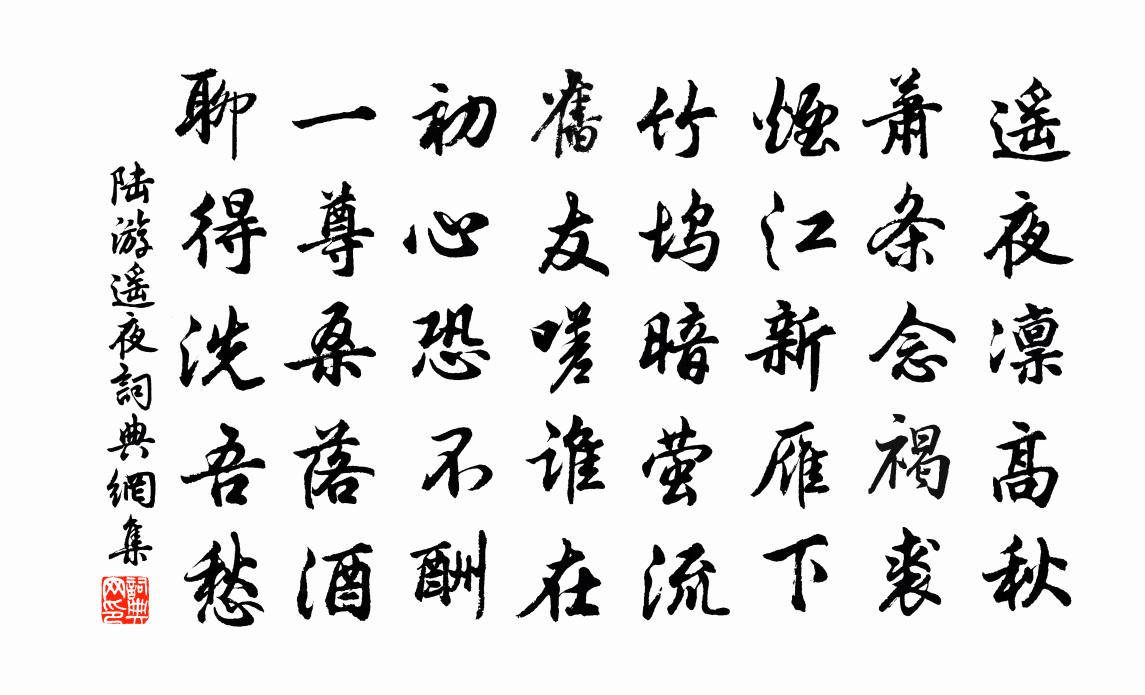 遥夜凛高秋
萧条念褐裘
煙江新雁下
竹坞暗萤流
舊友嗟谁在
初心恐不酬
一尊桑落酒
聊得洗吾愁
陆游遥夜詞典網集
詞典网印